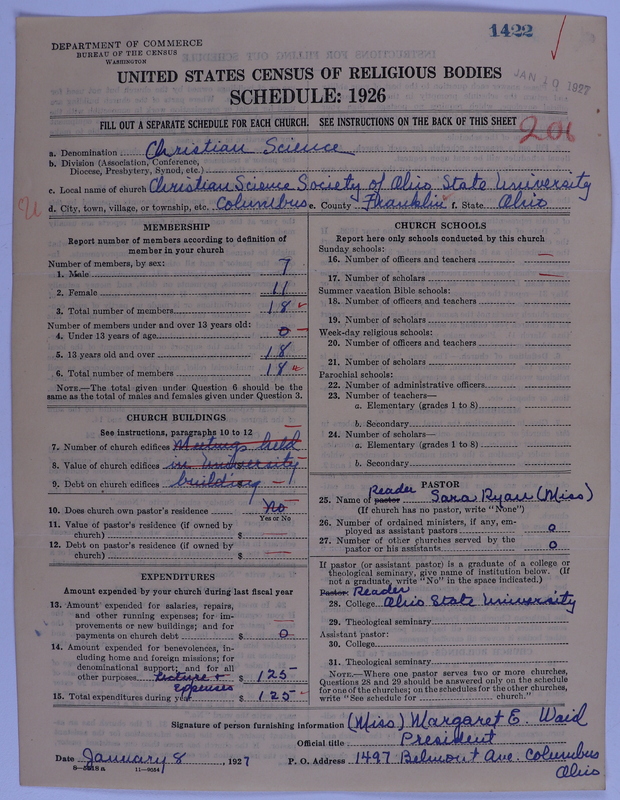 1422
DEPARTMENT OF COMMERCE
BUREAU OF THE CENSUS
WASHINGTON
JAN 19 1927
UNITED STATES CENSUS OF RELIGIOUS BODIES
SCHEDULE: 1926
FILL OUT A SEPARATE SCHEDULE FOR EACH CHURCH. SEE INSTRUCTIONS ON THE BACK OF THIS SHEET
206
a. Denomination Christian Science
b. Division (Association, Conference,
Diocese, Presbytery, Synod, etc.)
c. Local name of church Christian Science Society of Ohio State University
d. City, town, village, or township, etc. Columbus e. County Franklin f. State Ohio
MEMBERSHIP
Report number of members according to definition of
member in your church
Number of members, by sex:
1. Male 7
2. Female 11
3. Total number of members 18
Number of members under and over 13 years old:
4. Under 13 years of age 0
5. 13 years old and over 18
6. Total number of members 18
NOTE.—The total given under Question 6 should be the
same as the total of males and females given under Question 3.
CHURCH BUILDINGS
See instructions, paragraphs 10 to 12
7. Number of church edifices Meetings held
8. Value of church edifices in University
9. Debt on church edifices building
10. Does church own pastor's residence No
Yes or No
11. Value of pastor's residence (if owned by
church) $
12. Debt on pastor's residence (if owned by
church) $
EXPENDITURES
Amount expended by your church during last fiscal year
13. Amount expended for salaries, repairs,
and other running expenses; for im-
provements or new buildings; and for
payments on church debt $ 0
14. Amount expended for benevolences, in-
cluding home and foreign missions; for
denominational support; and for all
other purposes lecture + expenses $ 125
15. Total expenditures during year $ 125
CHURCH SCHOOLS
Report here only schools conducted by this church
Sunday schools:
16. Number of officers and teachers —
17. Number of scholars —
Summer vacation Bible schools:
18. Number of officers and teachers
19. Number of scholars
Week-day religious schools:
20. Number of officers and teachers
21. Number of scholars
Parochial schools:
22. Number of administrative officers
23. Number of teachers—
a. Elementary (grades 1 to 8)
b. Secondary
24. Number of scholars—
a. Elementary (grades 1 to 8)
b. Secondary
PASTOR
Reader
25. Name of pastor Sara Ryan (Miss)
(If church has no pastor, write "None")
26. Number of ordained ministers, if any, em-
ployed as assistant pastors 0
27. Number of other churches served by the
pastor or his assistants 0
If pastor (or assistant pastor) is a graduate of a college or
theological seminary, give name of institution below. (If
not a graduate, write "No" in the space indicated.)
Pastor: Reader
28. College Ohio State University
29. Theological seminary
Assistant pastor:
30. College
31. Theological seminary
NOTE.—Where one pastor serves two or more churches,
Questions 28 and 29 should be answered only on the schedule
for one of the churches; on the schedules for the other churches,
write "See schedule for church."
Signature of person furnishing information (Miss) Margaret E. Waid
Official title President
Date January 8, 1927 P. O. Address 1497 Belmont Ave. Columbus
Ohio
11—9054